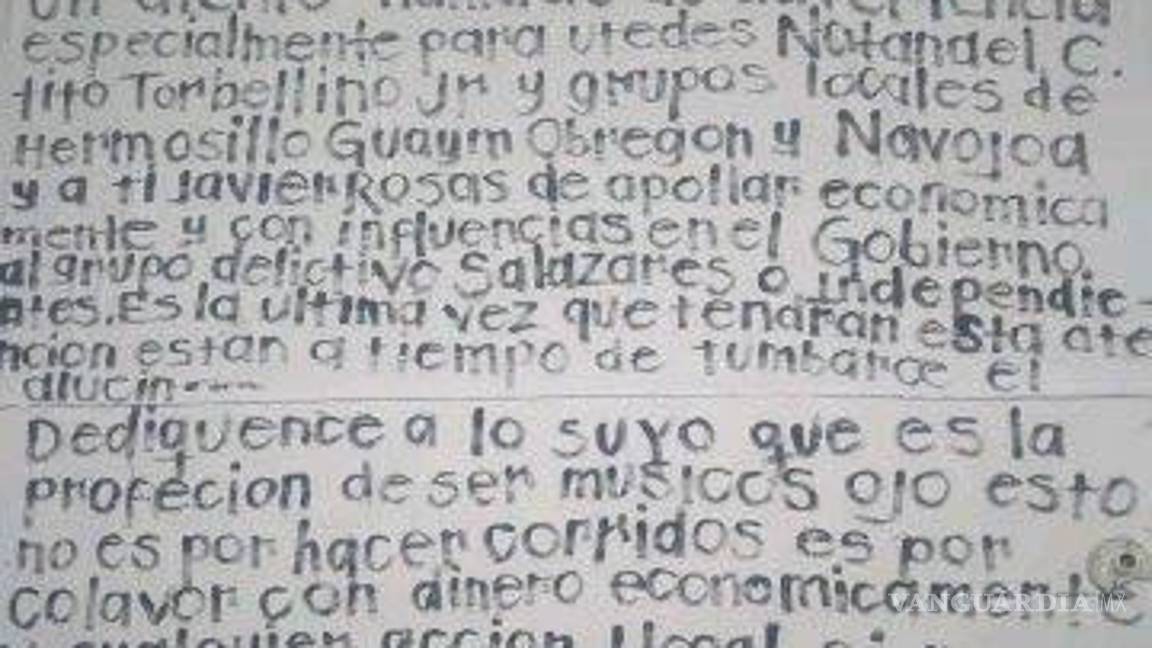 Un atento llamado de
especialmente para utedes Natanael C.
tito Torbellino Jr y grupos locales de
Hermosillo Guaym Obregon y Navojoa
y a ti Javier Rosas de apollar economica
mente y con influencias en el Gobierno.
al grupo delictivo Salazares o independie-
ntes. Es la ultima vez que tendran esta ate
ncion estan a tiempo de tumbarce el
alucin----
Dediquence a lo suyo que es la
profecion de ser musicos ojo esto
no es por hacer corridos es por
colavor con dinero economicamente
y cualquier accion
VANGUARDIA MX